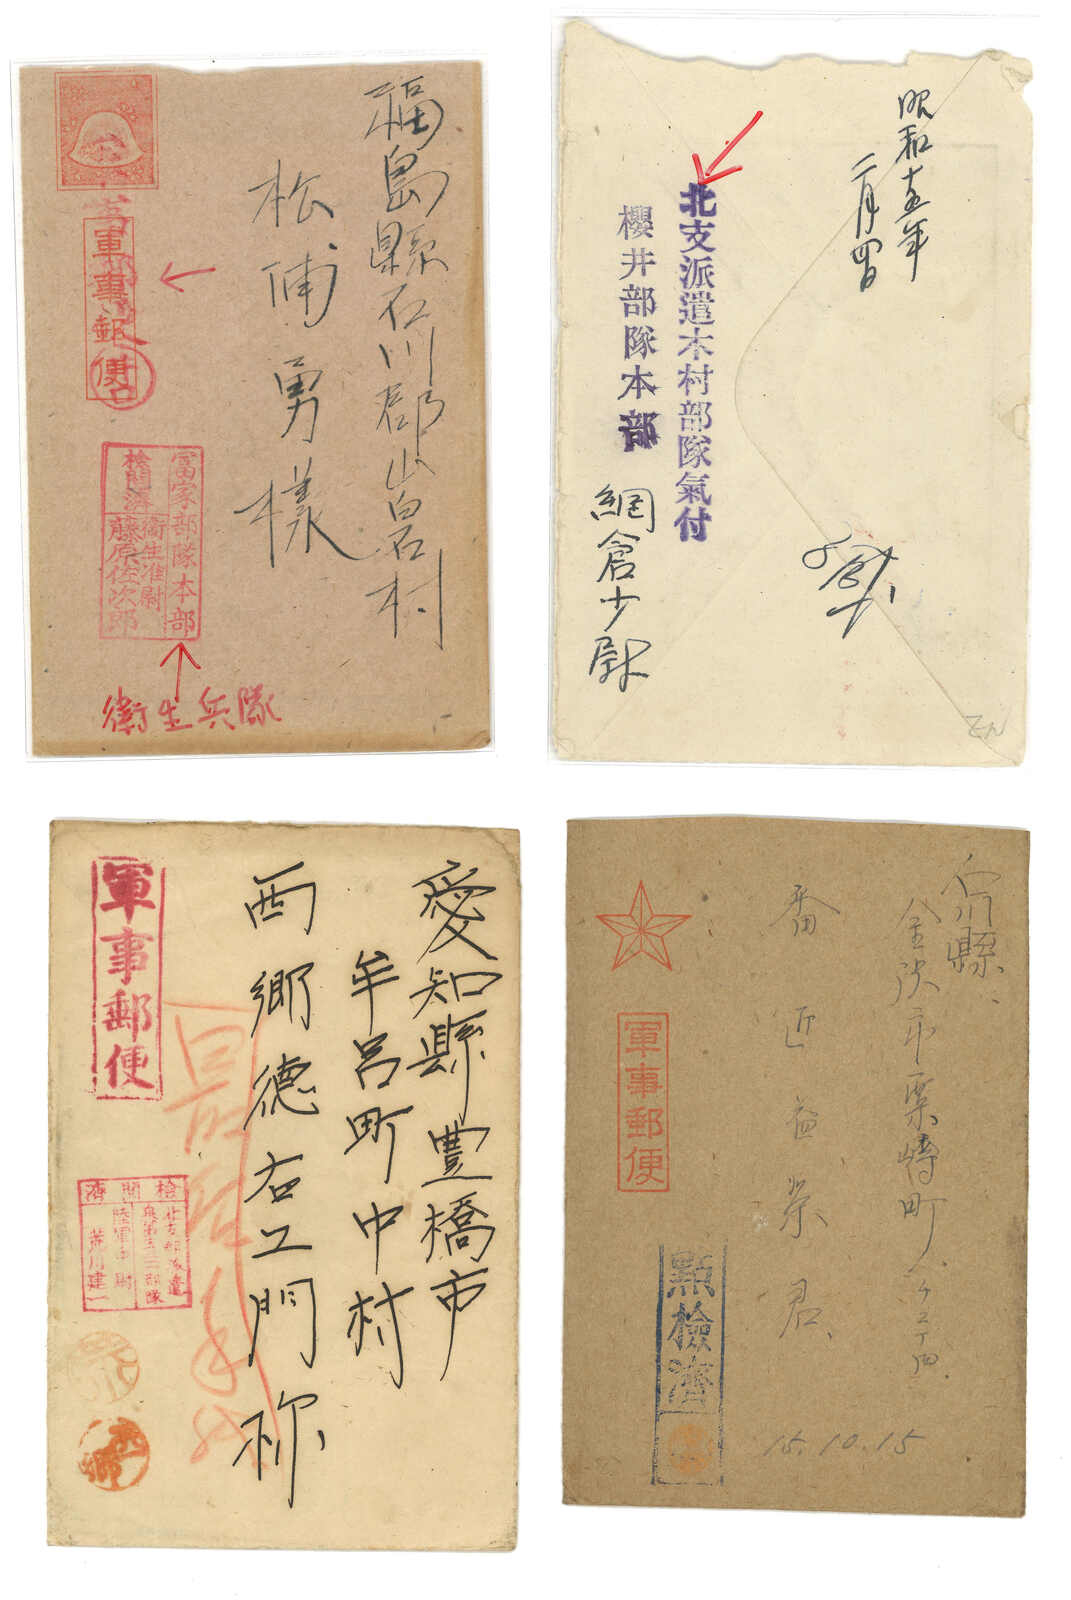 福島縣石川郡山白石村
松浦勇様
軍事郵便
富家部隊本部
衛生准尉
検閲済
藤原佐次郎
衛生兵隊
昭和十五年
二月四日
北支派遣木村部隊氣付
櫻井部隊本部
網倉少尉
愛知縣豊橋市
牟呂町中村
西郷德右工門称
軍事郵便
検閲濟
北支部派遣
陸軍中尉
荒川建一
西郷
石川縣
金沢市粟崎町
番匠益栄君
軍事郵便
點檢濟
15.10.15